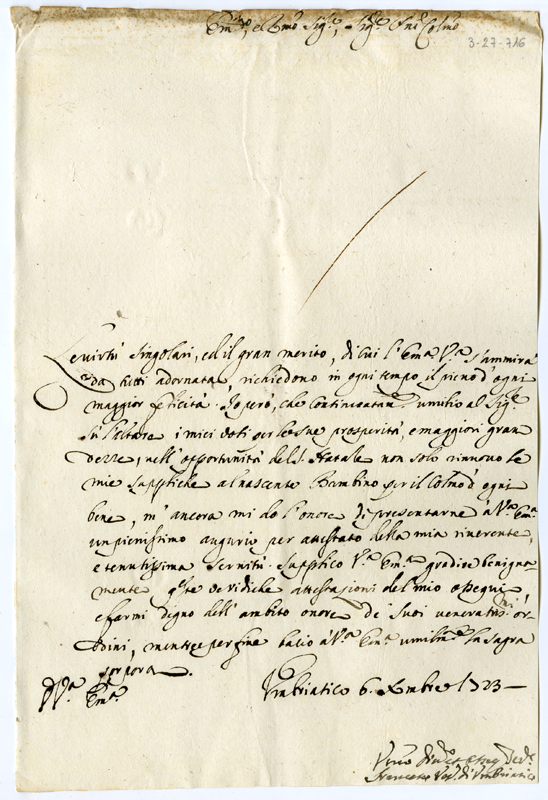 Em.mo, e Rmo Sig.re, Sig.re Pne Colmo
3-27-716
Le virtù singolari, ed il gran merito, di cui l'Em.a V.a s'ammira
da tutti adornata, richiedono in ogni tempo il pieno d'ogni
maggior felicità. Io però, che continuatam.e umilio al Sig.e
su l'altare i miei voti per le sue prosperità, e maggiori gran
dezze, nell'opportunità del S. Natale non solo rinnovo le
mie suppliche al nascente Bambino per il colmo d'ogni
bene, m'ancora mi do l'onore di presentarne à V.a Em.a
un pienissimo augurio per attestato della mia riverente,
e tenutissima servitù. Supplico V.a Em.a gradire benigna
mente q.ste veridiche attestazioni del mio ossequi,
e farmi digno dell'ambito onore de' suoi veneratis.mi or-
dini, mentre per fine bacio à V.a Em.a umilm.e la sagra
porpora.
D V.a Em.a
Umbriatico 6 Xmbre 1723
Francesco Ves.o di Umbriatico